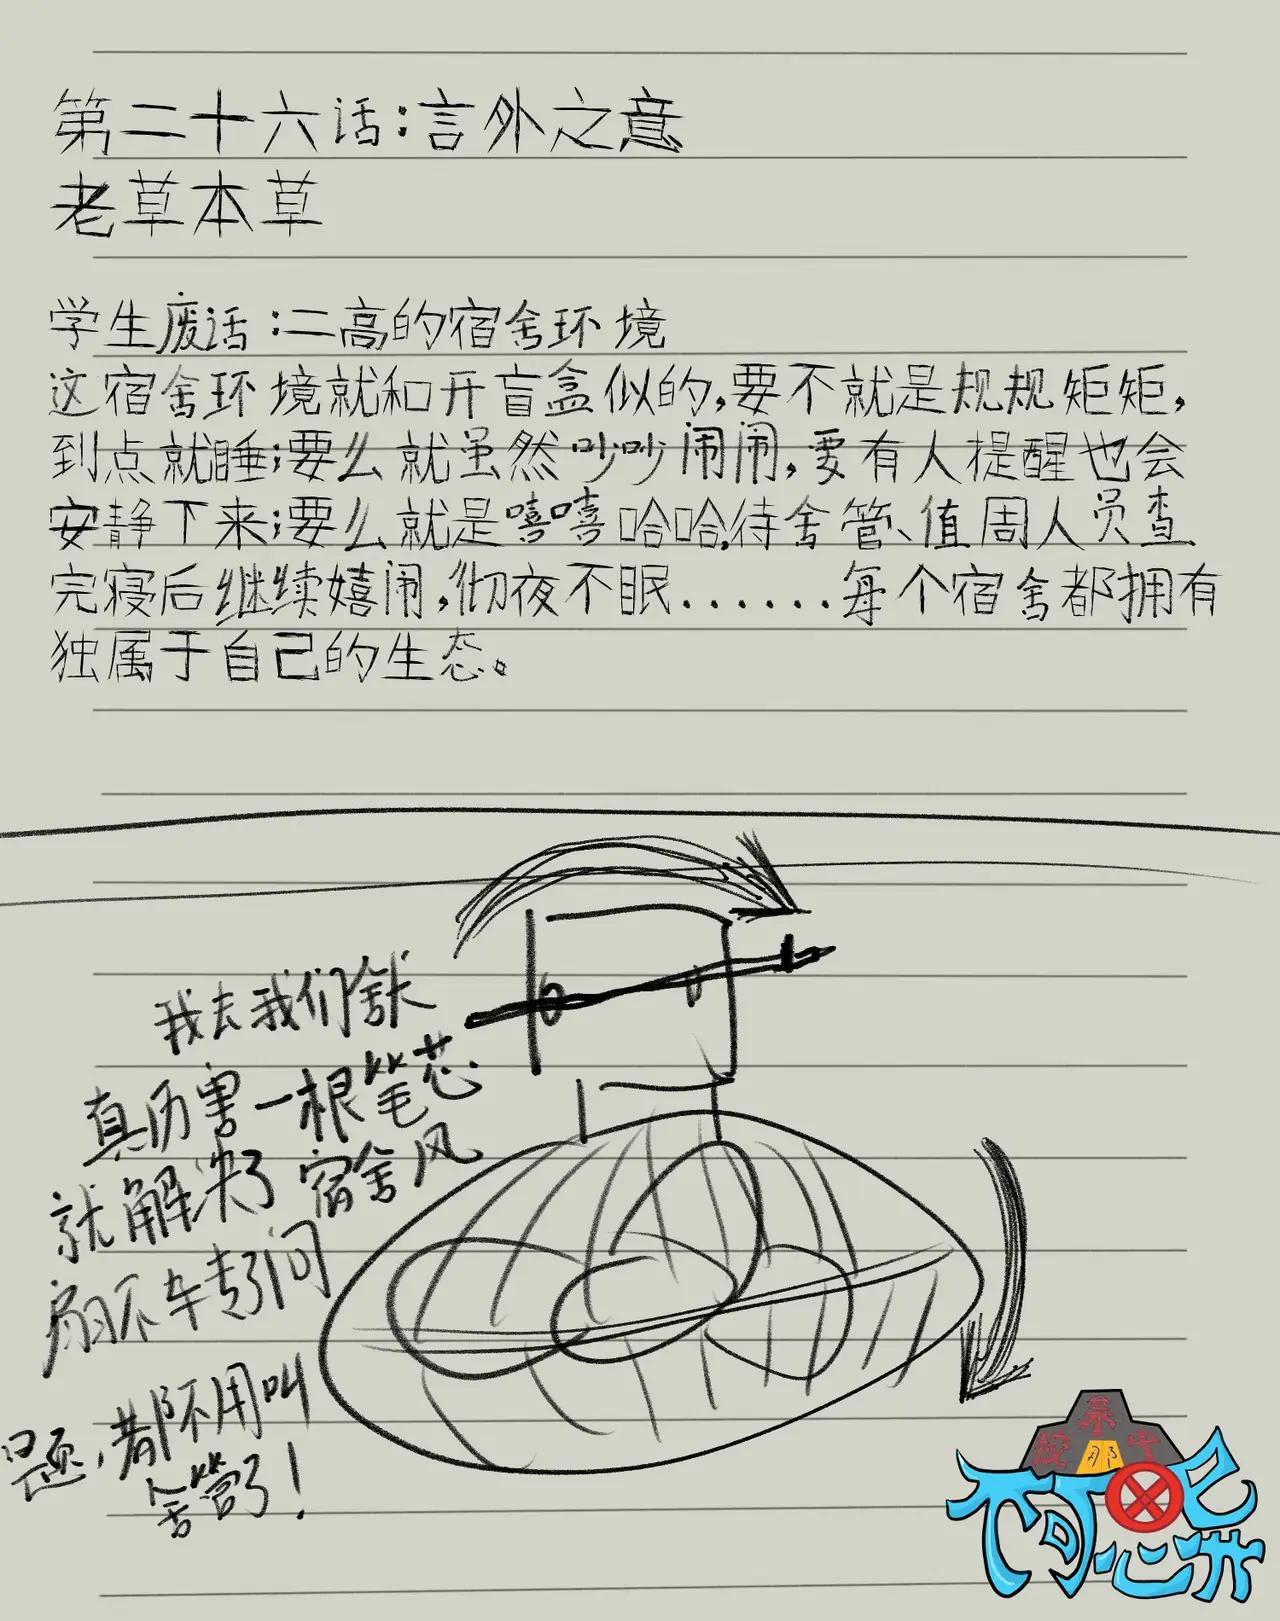 第二十六话:言外之意
老草本草
学生废话:二高的宿舍环境
这宿舍环境就和开盲盒似的,要不就是规规矩矩,
到点就睡;要么就虽然吵吵闹闹,要有人提醒也会
安静下来;要么就是嘻嘻哈哈,待舍管、值周人员查
完寝后继续嬉闹,彻夜不眠......每个宿舍都拥有
独属于自己的生态。
我去我们舍长
真历害一根笔芯
就解决了宿舍风
扇不转了问
题,都不用叫
舍管了!
那
不可思异